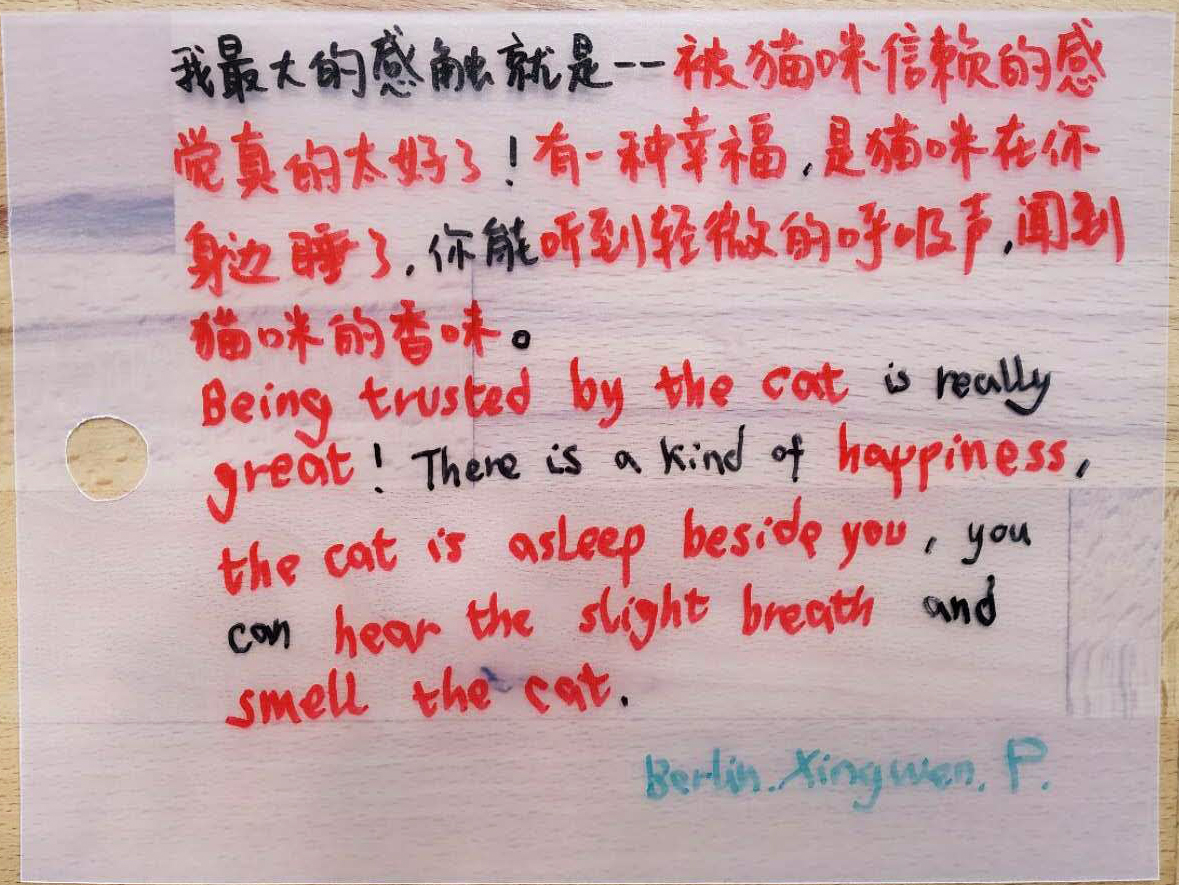 我最大的感触就是--被猫咪信赖的感
觉真的太好了！有一种幸福，是猫咪在你
身边睡了，你能听到轻微的呼吸声，闻到
猫咪的香味。
Being trusted by the cat is really
great! There is a kind of happiness,
the cat is asleep beside you, you
can hear the slight breath and
smell the cat.
Berlin. Xingwen. P.